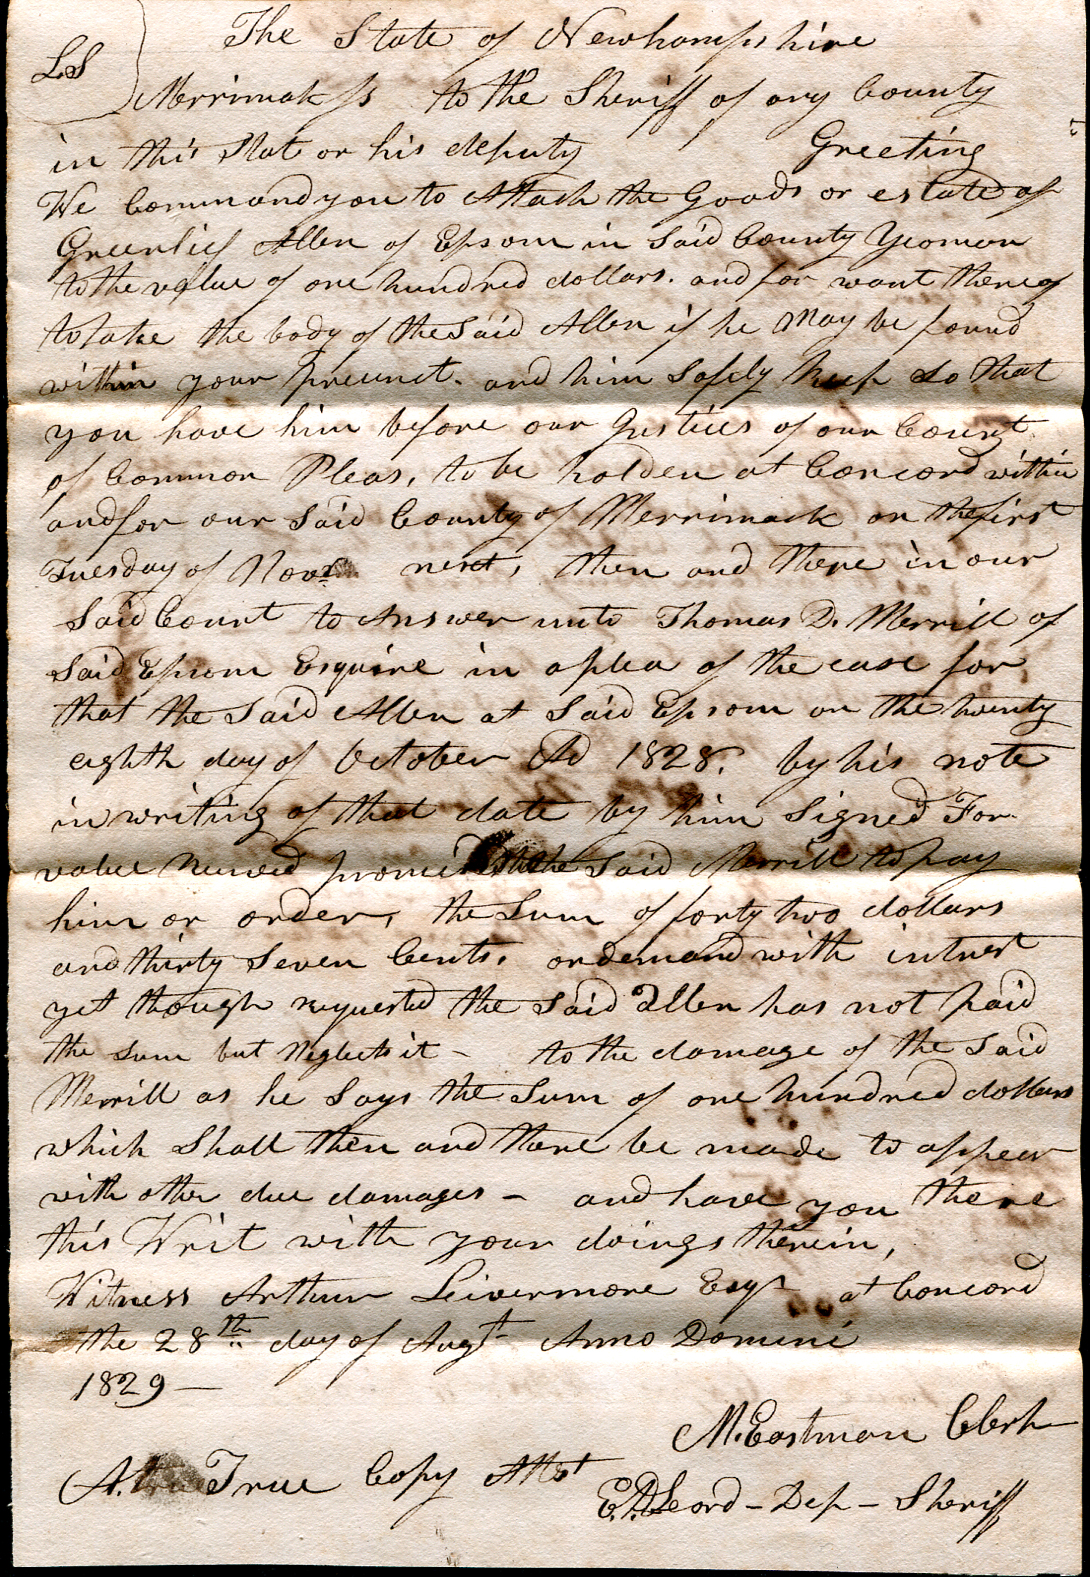 The State of Newhampshire
LS
Merrimak ss to the Sheriff of any County
in this Stat or his deputy Greeting
We Command you to Attach the Goods or estate of
Greenlief Allen of Epsom in Said County Yeoman
to the value of one hundred dollars. and for want thereof
to take the body of the Said Allen if he May be found
within your precinct. and him Safely keep So that
you have him before our Justices of our Court
of Common Pleas, to be holden at Concord within
and for our Said County of Merrimack on the first
Tuesday of Novr next, then and there in our
Said Court to Answer unto Thomas D. Merrill of
Said Epsom Esquire in a plea of the case for
that the Said Allen at Said Epsom on the twenty
eighth day of October AD 1828. by his note
in writing of that date by him Signed For
value received the Said Merrill to pay
him or order, the Sum of forty two dollars
and thirty Seven Cents. on demand with intrest
yet though requested the Said Allen has not paid
the Sum but Neglects it - to the damage of the Said
Merrill as he Says the Sum of one hundred dollars
which Shall then and there be made to appear
with other due damages - and have you there
this Writ with your doings therein,
Witness Arthur Leivermore Esqr at Concord
the 28th day of Augt Anno Domini
1829 —
M. Eastman Clerk
A. True Copy Attst
Dep - Sheriff